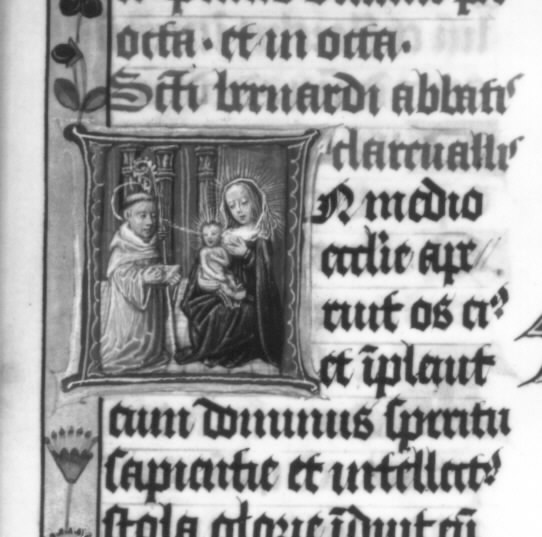 octa · et in octa ·
Sc̄ti bernardi abbatis
clareuallis
N medio
eccl̄ie ape
ruit os ei⁹
et īpleuit
eum dominus spiritu
sapientie et intellect⁹
stola glorie īduit eū